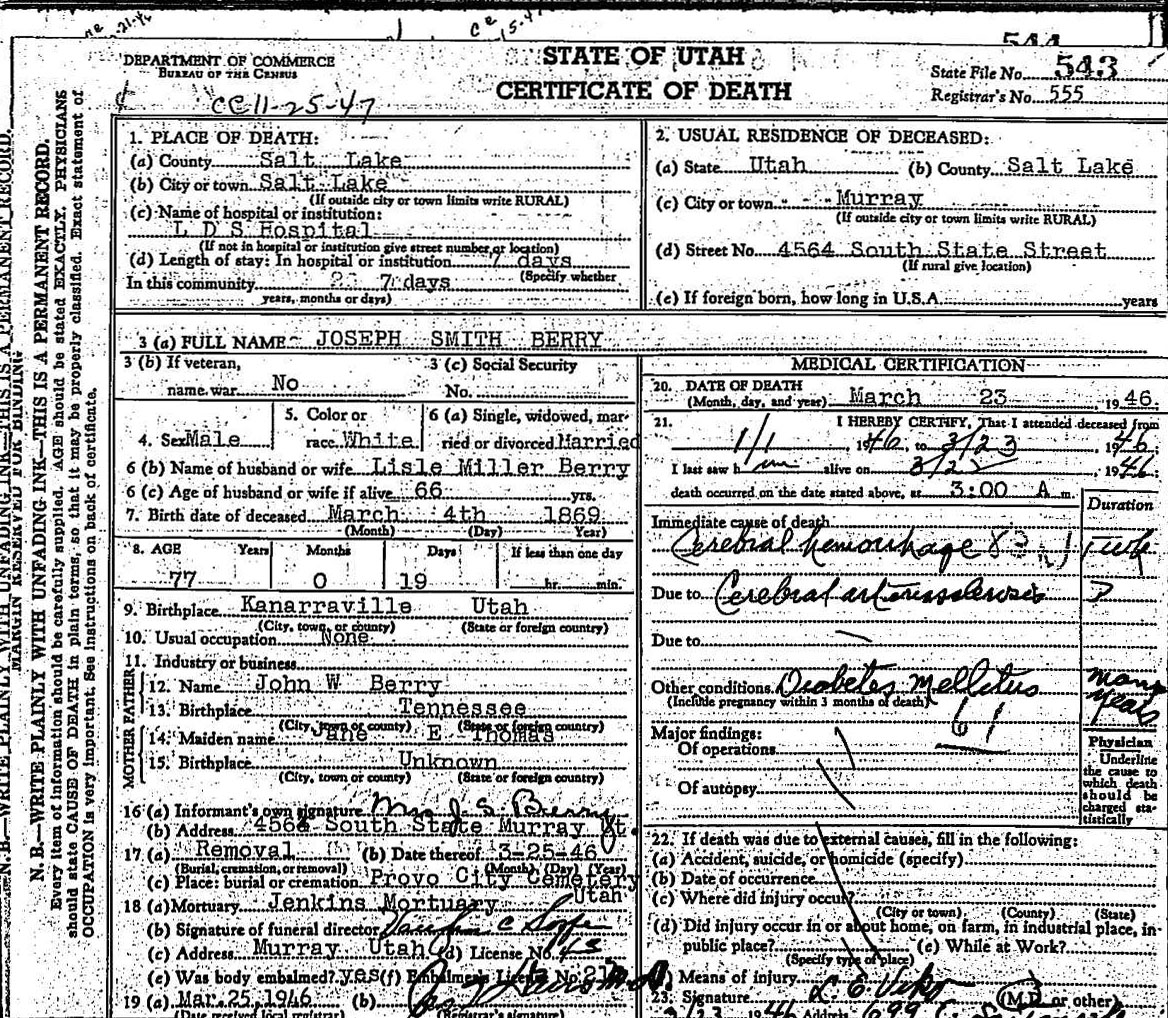 544
DEPARTMENT OF COMMERCE
BUREAU OF THE CENSUS
STATE OF UTAH
CERTIFICATE OF DEATH
State File No. 543
Registrar's No. 555
CC 11-25-47
MARGIN RESERVED FOR BINDING
N. B.—WRITE PLAINLY WITH UNFADING INK—THIS IS A PERMANENT RECORD.
Every item of information should be carefully supplied. AGE should be stated EXACTLY. PHYSICIANS
should state CAUSE OF DEATH in plain terms, so that it may be properly classified. Exact statement of
OCCUPATION is very important. See instructions on back of certificate.
1. PLACE OF DEATH:
(a) County Salt Lake
(b) City or town Salt Lake
(If outside city or town limits write RURAL)
(c) Name of hospital or institution:
L D S Hospital
(If not in hospital or institution give street number or location)
(d) Length of stay: In hospital or institution 7 days
(Specify whether
In this community 7 days
years, months or days)
2. USUAL RESIDENCE OF DECEASED:
(a) State Utah (b) County Salt Lake
(c) City or town Murray
(If outside city or town limits write RURAL)
(d) Street No. 4564 South State Street
(If rural give location)
(e) If foreign born, how long in U.S.A. years
3 (a) FULL NAME JOSEPH SMITH BERRY
3 (b) If veteran, 3 (c) Social Security
name war No No.
4. Sex Male 5. Color or race White 6 (a) Single, widowed, married or divorced Married
6 (b) Name of husband or wife Lisle Miller Berry
6 (c) Age of husband or wife if alive 66 yrs.
7. Birth date of deceased March 4th 1869
(Month) (Day) Year)
8. AGE Years Months Days If less than one day
77 0 19 hr. min.
9. Birthplace Kanarraville Utah
(City, town, or county) (State or foreign country)
10. Usual occupation None
11. Industry or business
FATHER
12. Name John W Berry
13. Birthplace Tennessee
(City, town or county) (State or foreign country)
MOTHER
14. Maiden name Jane E Thomas
15. Birthplace Unknown
(City, town or county) (State or foreign country)
16 (a) Informant's own signature Mrs J. S. Berry
(b) Address 4564 South State Murray Ut.
17 (a) Removal (b) Date thereof 3-25-46
(Burial, cremation, or removal) (Month) (Day) (Year)
(c) Place: burial or cremation Provo City Cemetery
Utah
18 (a) Mortuary Jenkins Mortuary
(b) Signature of funeral director
(c) Address Murray Utah (d) License No. 43
(e) Was body embalmed? yes (f) Embalmer's License No.
19 (a) Mar. 25, 1946 (b)
(Date received local registrar) (Registrar's signature)
MEDICAL CERTIFICATION
20. DATE OF DEATH
(Month, day, and year) March 23, 1946.
21. I HEREBY CERTIFY, That I attended deceased from
1/1, 1946, to 3/23, 1946
I last saw him alive on 3/22, 1946
death occurred on the date stated above, at 3:00 A m.
Duration
Immediate cause of death
Cerebral hemorrhage
Due to Cerebral arteriosclerosis ?
Due to
Other conditions Diabetes Mellitus many years
(Include pregnancy within 3 months of death)
61
Major findings:
Of operations
Of autopsy
Physician
Underline
the cause to
which death
should be
charged sta-
tistically
22. If death was due to external causes, fill in the following:
(a) Accident, suicide, or homicide (specify)
(b) Date of occurrence
(c) Where did injury occur?
(City or town) (County) (State)
(d) Did injury occur in or about home, on farm, in industrial place, in
public place? (e) While at Work?
(Specify type of place)
Means of injury
23. Signature L. E. Viko (M.D. or other)
3/23 1946 Address 699